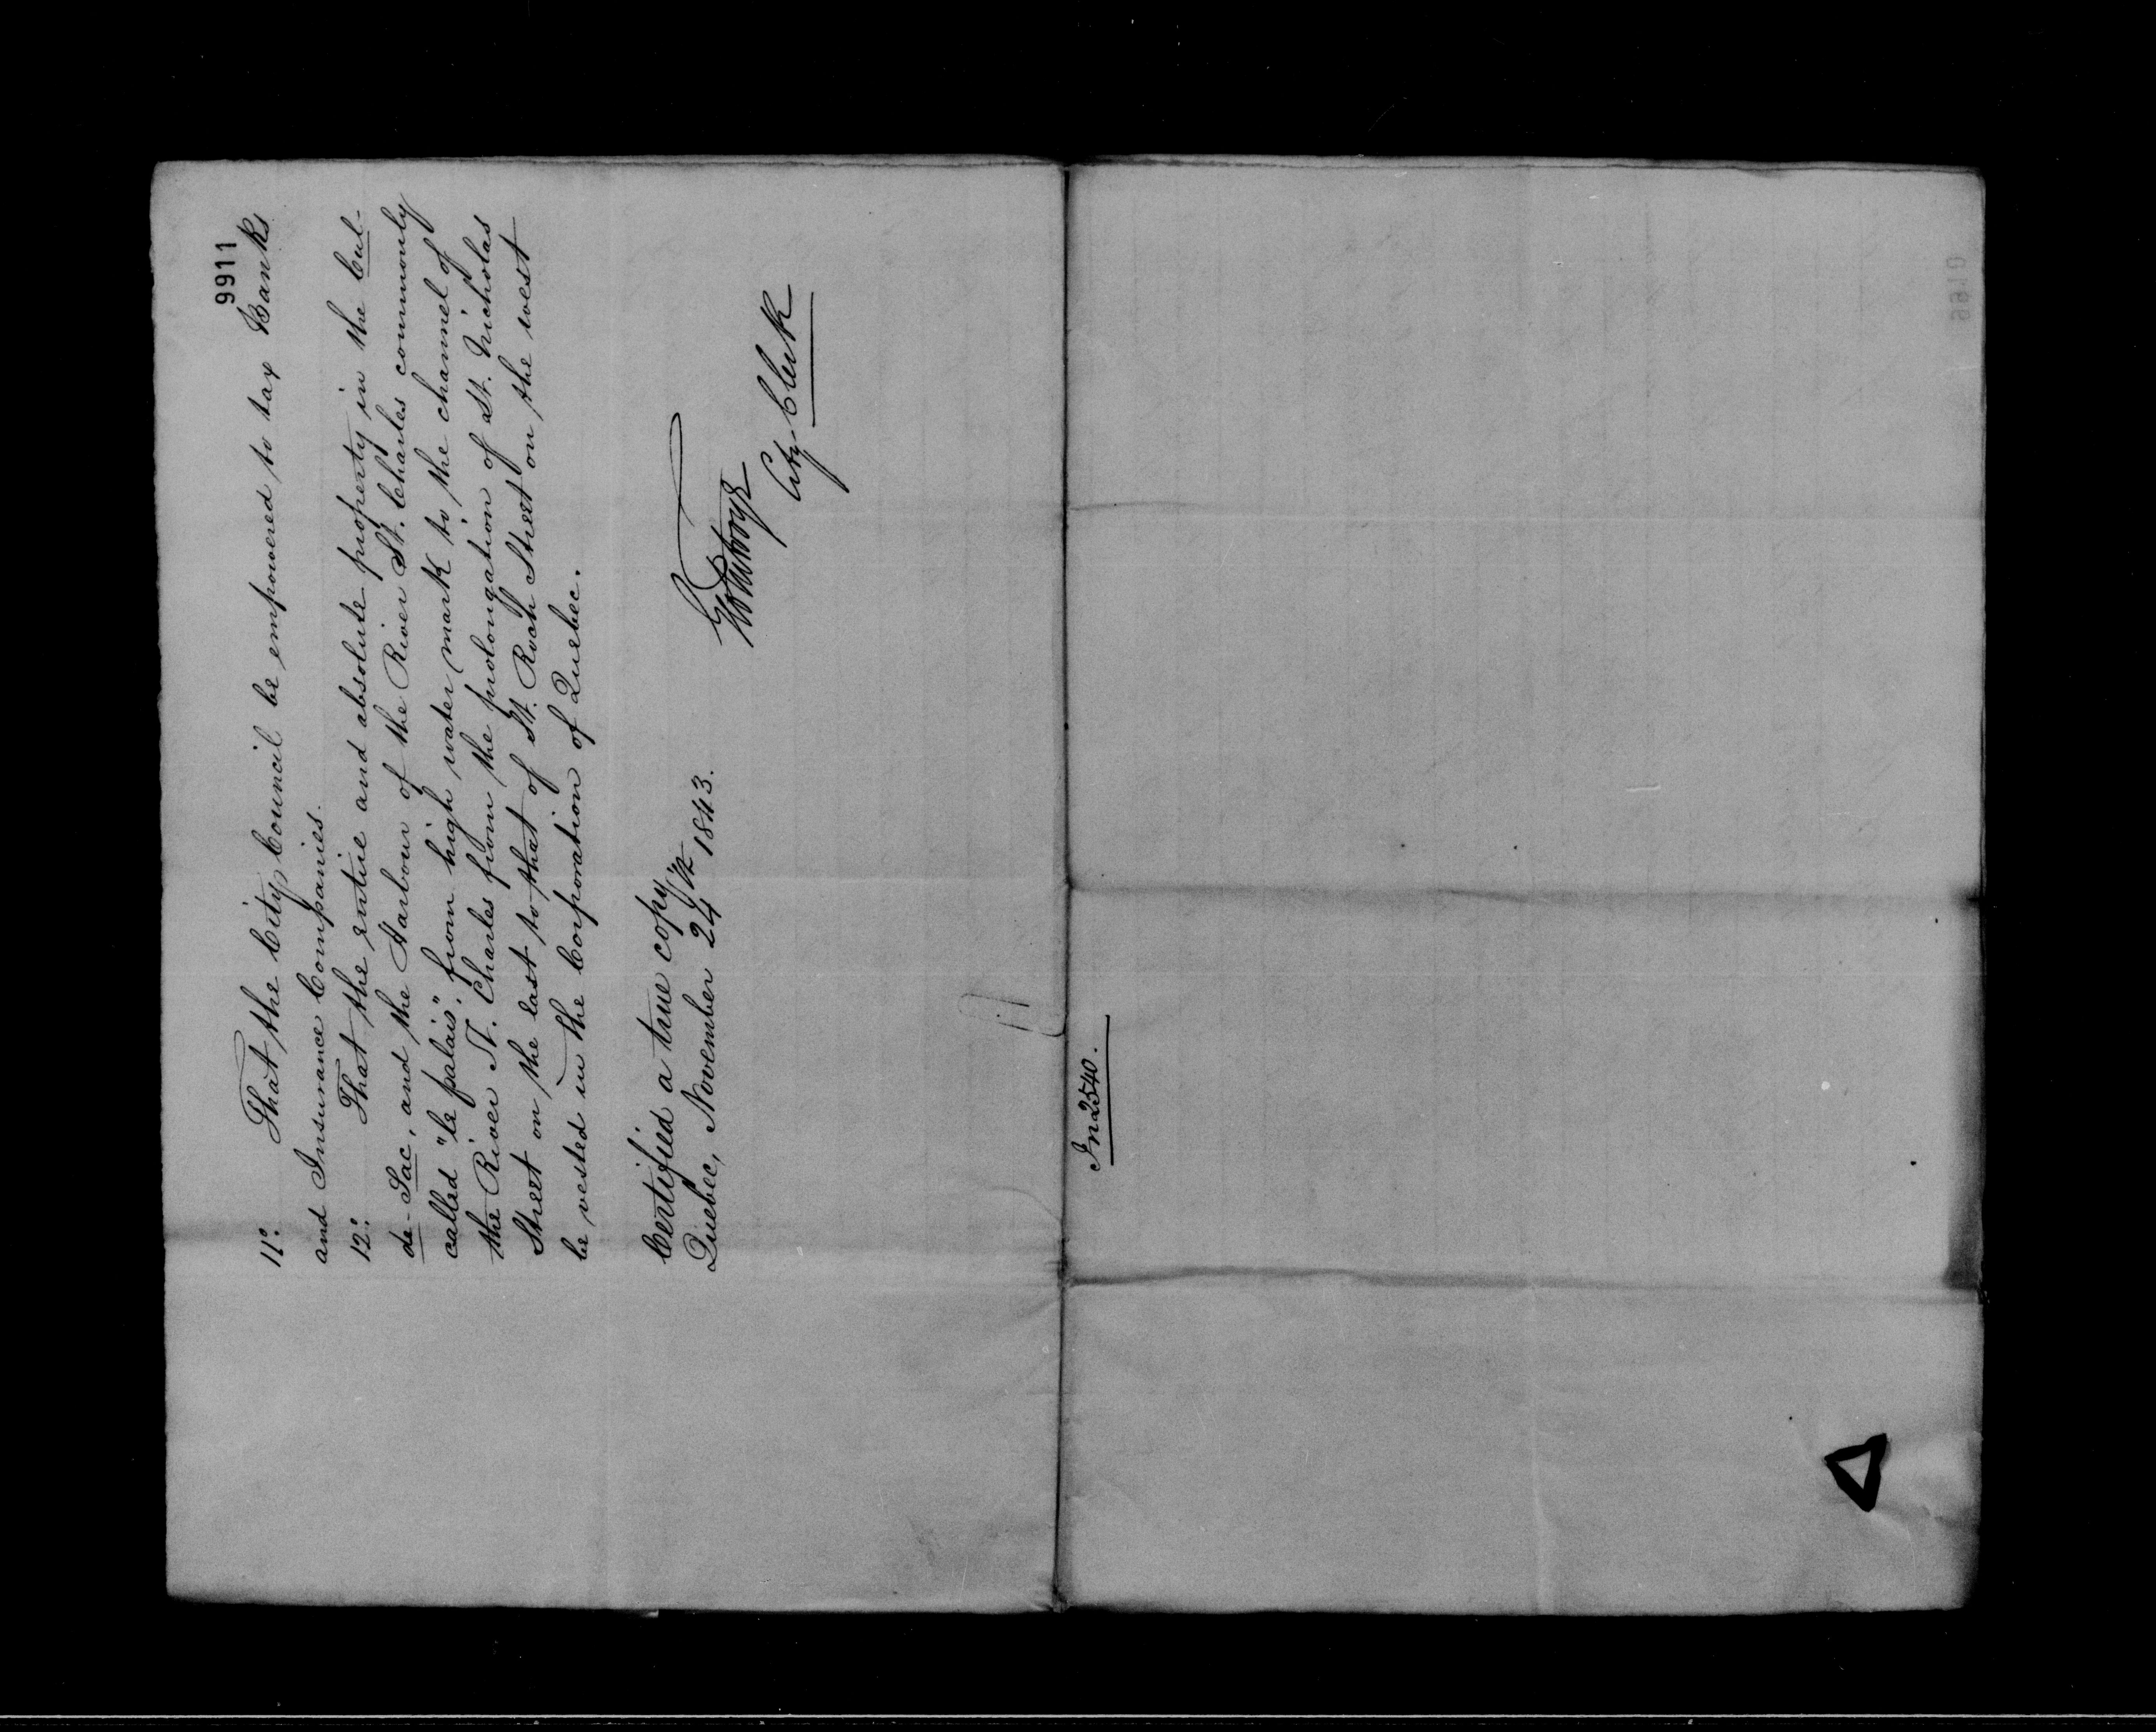 9911
11º. That the City Council be empowered to tax Banks
and Insurance Companies.
12º. That the entire and absolute property in the Cul-
de-Sac, and the Harbour of the River St. Charles commonly
called "le palais", from high water mark to the channel of
the River St. Charles from the prolongation of St. Nicholas
Street on the east to that of St. Roch Street on the west
be vested in the Corporation of Quebec.
Certified a true copy
Quebec, November 24th 1843.
City Clerk
In 2540.